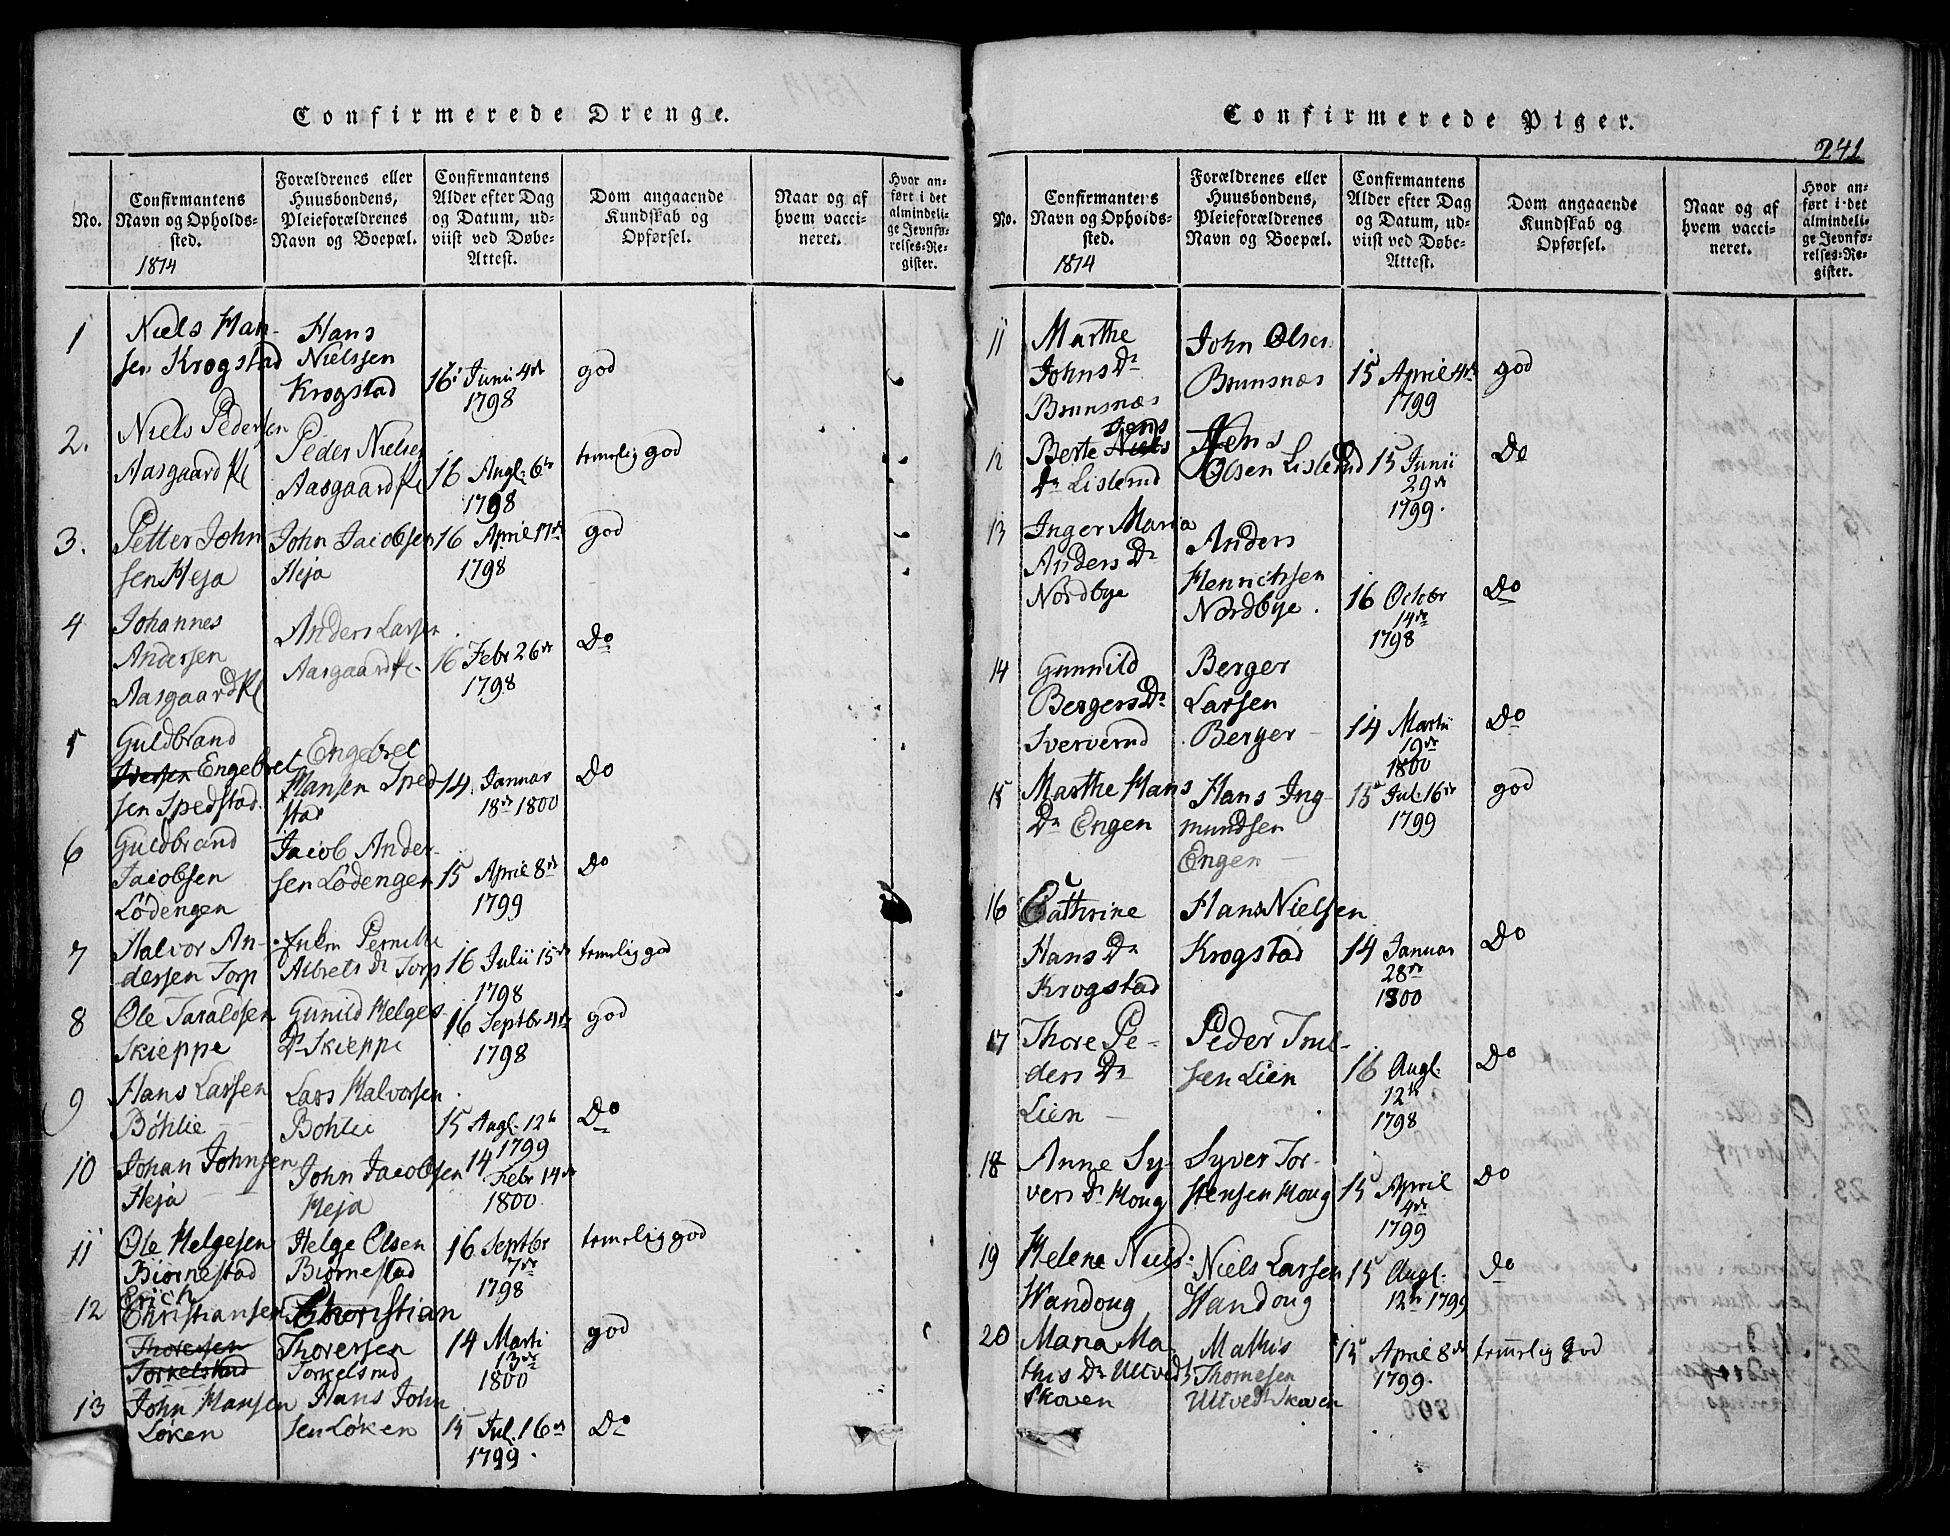 Confirmerede Drenge.
No.
Confirmantens
Navn og Opholds-
sted.
1814
Forældrenes eller
Huusbondens,
Pleieforældrenes
Navn og Boepæl.
Confirmantens
Alder efter Dag
og Datum, ud-
viist ved Døbe-
Attest.
Dom angaaende
Kundskab og
Opførsel.
Naar og af
hvem vacci-
neret.
Hvor an-
ført i det
almindeli-
ge Jevnfø-
relses-Re-
gister.
1
Niels Han-
sen Krogstad
Hans
Nielssen
Krogstad
16 Junii 4de
1798
god
2.
Niels Pedersen
Aasgaard
Peder Nielsen
Aasgaard
16 Augl. 6te
1798
temelig god
3.
Petter John
sen Heja
John Jacobsen
Heja
16 April 17de
1798
god
4
Johannes
Andersen
Aasgaard
Anders Larsen
Aasgaard
16 Febr 26de
1798
Do
5
Guldbrand
Iversen Engebret
sen Spedstad
Engebret
Hansen Sped
stad
14. Januar
18de 1800
Do
6
Guldbrand
Jacobsen
Lödengen
Jacob Ander-
sen Lödengen
15 April 8de
1799
Do
7
Halvor An-
dersen Torp
Pernille
Albrets Dr Torp
16 Julii 15de
1798
temelig god
8
Ole Taraldsen
Skieppe
Gunild Helges
Dr Skieppe
16 Septbr 4de
1798
god
9
Hans Larsen
Böhlie
Lars Halvorsen
Bohlie
15 Augl. 12te
1799
Do
10
Johan Johnsen
Heja
John Jacobsen
Heja
14
Febr 14de
1800
11
Ole Helgesen
Biørnestad
Helge Olsen
Biørnestad
16 Septbr
7de
1798
temelig god
12
Erich
Christiansen
Thorersen
Torkelstad
Christian
Thorersen
Torkelsrud
14 Marti
13de
1800
god
13
John Hansen
Løken
Hans John
sen Løken
15 Jul. 16de
1799.
Do
Confirmerede Piger.
241
No.
Confirmantens
Navn og Opholds-
sted.
1814
Forældrenes eller
Huusbondens,
Pleieforældrenes
Navn og Boepæl.
Confirmantens
Alder efter Dag
og Datum, ud-
viist ved Døbe-
Attest.
Dom angaaende
Kundskab og
Opførsel.
Naar og af
hvem vacci-
neret.
Hvor an-
ført i det
almindeli-
ge Jevnfø-
relses-Re-
gister.
11
Marthe
Johns Dr
Brunsnæs
John Olsen
Brunsnæs
15 April 4de
1799
god
12
Jens
Berte Niels
Dr Lislerud
Jens
Olsen Lislerud
15 Junii
29de
1799.
Do
13
Inger Maria
Anders Dr
Nordbye
Anders
Henrichsen
Nordbye.
16 October
14de
1798
Do
14
Gunnild
Bergers Dr
Sververud
Berger
Larsen
Berger
14 Martii
19de
1800
Do
15
Marthe Hans
Dr Engen
Hans Ing-
mundsen
Engen
15 Jul. 16de
1799
god
16
Cathrine
Hans Dr
Krogstad
Hans Nielsen
Krogstad
14 Januar
28de
1800
Do
17
Thore Pe-
ders Dr
Lien
Peder Trul-
sen Lien
16 Augl.
12te
1798
Do
18
Anne Sy-
vers Dr Houg
Syver Tor-
stensen Houg
15 April
4de
1799
Do
19
Helene Niels
Wandoug
Niels Larsen
Wandoug
15 Augl.
12te 1799
Do
20
Maria Ma-
this Dr Utvedt
Skoven
Mathis
Thomesen
Utvedt Skoven
15 April 8de
1799.
temelig god